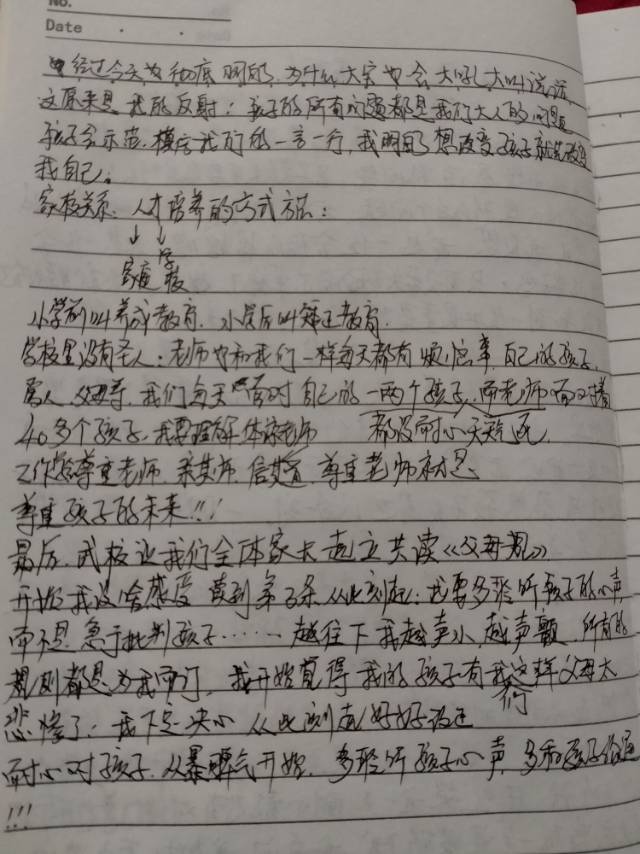 No.
Date
经过今天也彻底明白,为什么大家也会大吼大叫说话
这原来是我的反射:孩子的所有问题都是我们大人的问题
孩子会示范、模仿我们的一言一行,我明白想改变孩子就先改变
我自己。
家校关系:人才培养的方式方法:
↓ ↓
家庭 学校
小学前叫养成教育.小学后叫矫正教育.
学校里没有圣人:老师也和我们一样每天都有烦恼事,自己的孩子,
家人,父母等,我们每天面对自己的一两个孩子,而老师面对着
40多个孩子,我要理解体谅老师 都没耐心天天
尊重老师 亲其师,信其道,尊重老师就是
尊重孩子的未来!!!
最后,武校让我们全体家长起立共读《父母规》
开始我没啥感受 读到第3条 从此刻起:我要多聆听孩子的心声
而不是急于批判孩子……越往下我越声小,越声颤,所有的
规则都是为我而订,我开始觉得我的孩子有我们这样父母太
悲惨了:我下定决心从此刻起好好说话
耐心对孩子,从暴脾气开始,多聆听孩子心声,多和孩子沟通
!!!